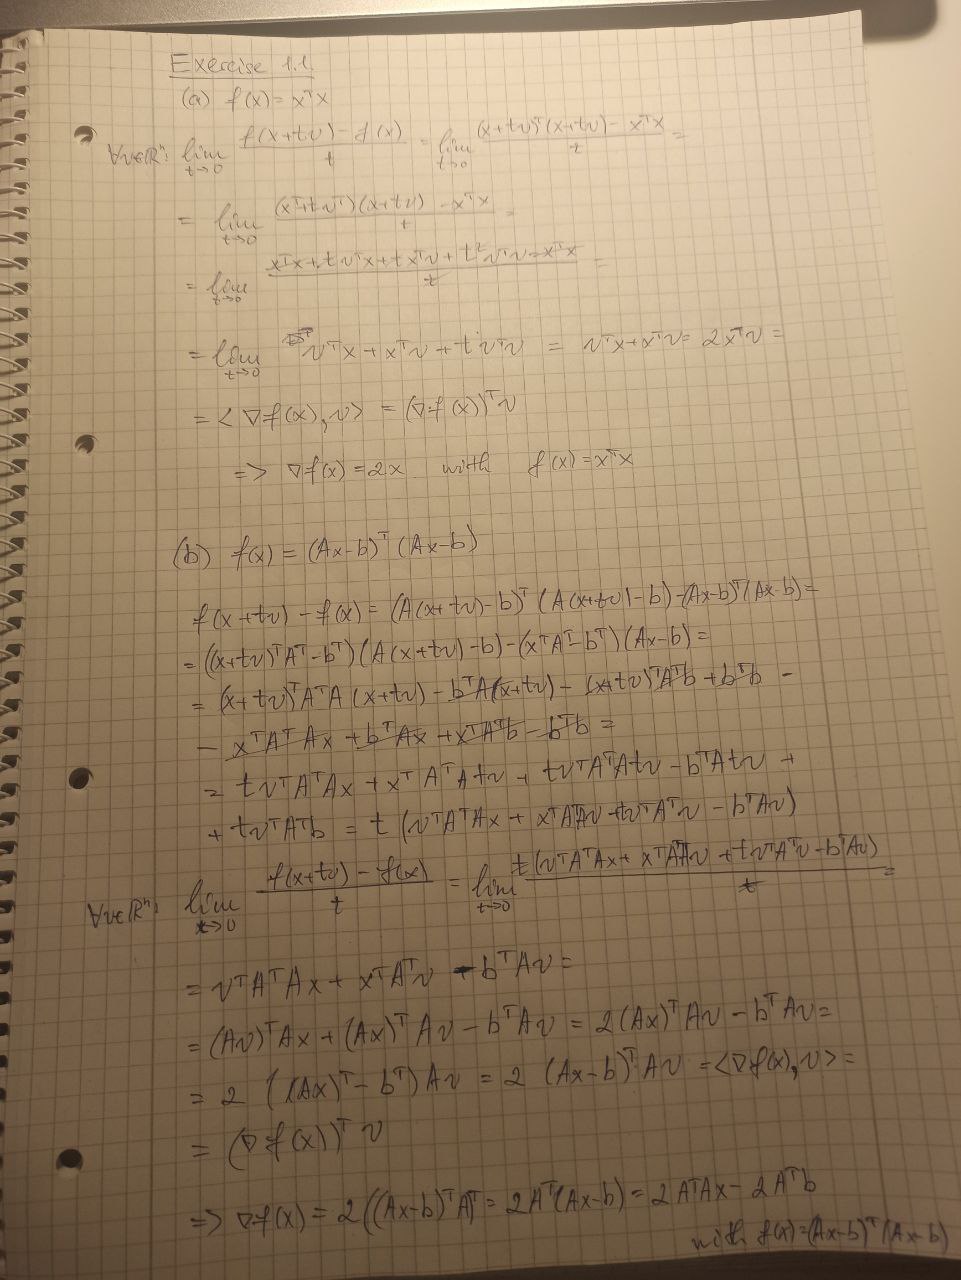 Exercise 1.1
(a) f(x) = xᵀx
∀v∈ℝⁿ: lim_{t→0} (f(x+tv) - f(x))/t = lim_{t→0} ((x+tv)ᵀ(x+tv) - xᵀx)/t =
= lim_{t→0} ((xᵀ+tvᵀ)(x+tv) - xᵀx)/t =
= lim_{t→0} (xᵀx + tvᵀx + txᵀv + t²vᵀv - xᵀx)/t =
= lim_{t→0} vᵀx + xᵀv + tvᵀv = vᵀx + xᵀv = 2xᵀv =
= <∇f(x), v> = (∇f(x))ᵀv
=> ∇f(x) = 2x with f(x) = xᵀx
(b) f(x) = (Ax-b)ᵀ(Ax-b)
f(x+tv) - f(x) = (A(x+tv)-b)ᵀ(A(x+tv)-b) - (Ax-b)ᵀ(Ax-b) =
= ((x+tv)ᵀAᵀ-bᵀ)(A(x+tv)-b) - (xᵀAᵀ-bᵀ)(Ax-b) =
= (x+tv)ᵀAᵀA(x+tv) - bᵀA(x+tv) - (x+tv)ᵀAᵀb + bᵀb -
- xᵀAᵀAx + bᵀAx + xᵀAᵀb - bᵀb =
= tvᵀAᵀAx + xᵀAᵀAtv + tvᵀAᵀAtv - bᵀAtv +
+ tvᵀAᵀb = t(vᵀAᵀAx + xᵀAᵀAv + tvᵀAᵀv - bᵀAv)
∀v∈ℝⁿ: lim_{t→0} (f(x+tv) - f(x))/t = lim_{t→0} t(vᵀAᵀAx + xᵀAᵀAv + tvᵀAᵀv - bᵀAv)/t =
= vᵀAᵀAx + xᵀAᵀv - bᵀAv =
= (Av)ᵀAx + (Ax)ᵀAv - bᵀAv = 2(Ax)ᵀAv - bᵀAv =
= 2((Ax)ᵀ - bᵀ)Av = 2(Ax-b)ᵀAv = <∇f(x), v> =
= (∇f(x))ᵀv
=> ∇f(x) = 2((Ax-b)ᵀA)ᵀ = 2Aᵀ(Ax-b) = 2AᵀAx - 2Aᵀb
with f(x) = (Ax-b)ᵀ(Ax-b)